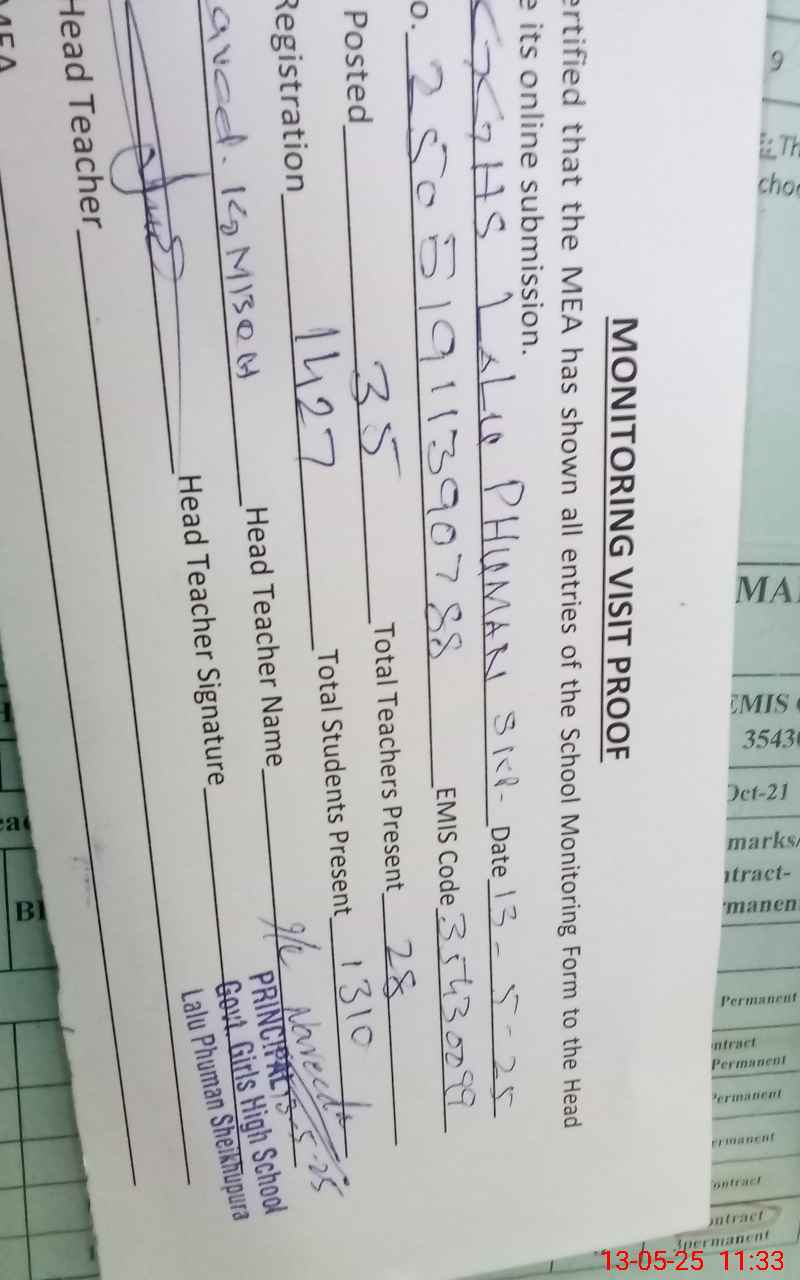 MONITORING VISIT PROOF
ertified that the MEA has shown all entries of the School Monitoring Form to the Head
e its online submission.
GGHS LALU PHUMAN SKP- Date 13-5-25
o. 250519113907 88 EMIS Code 35430099
Posted 35 Total Teachers Present 28
Registration 1427 Total Students Present 1310
Head Teacher Name Naveed
Head Teacher Signature
PRINCIPAL 13-5-25
Govt. Girls High School
Lalu Phuman Sheikhupura
Head Teacher
MEA
9
iii Th
choo
MA
EMIS
3543
Oct-21
marks/
ntract-
manen
Permanent
ntract
Permanent
Permanent
ermanent
ontract
ontract
permanent
BI
13-05-25 11:33